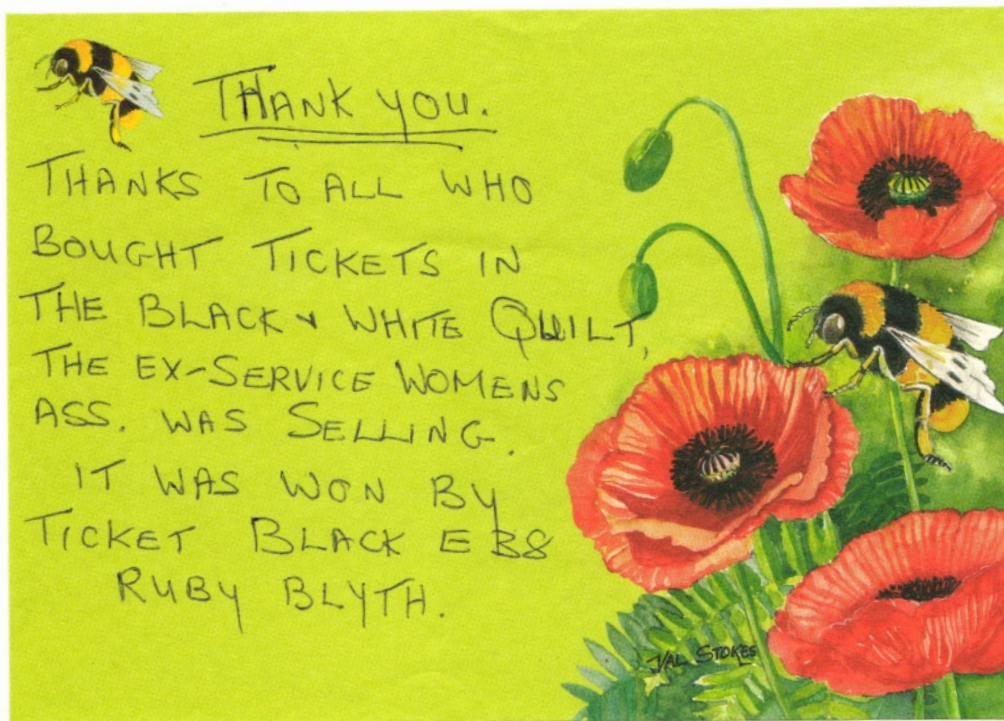 THANK YOU.
THANKS TO ALL WHO
BOUGHT TICKETS IN
THE BLACK & WHITE QUILT,
THE EX-SERVICE WOMENS
ASS. WAS SELLING.
IT WAS WON BY
TICKET BLACK E 38
RUBY BLYTH.
VAL STOKES